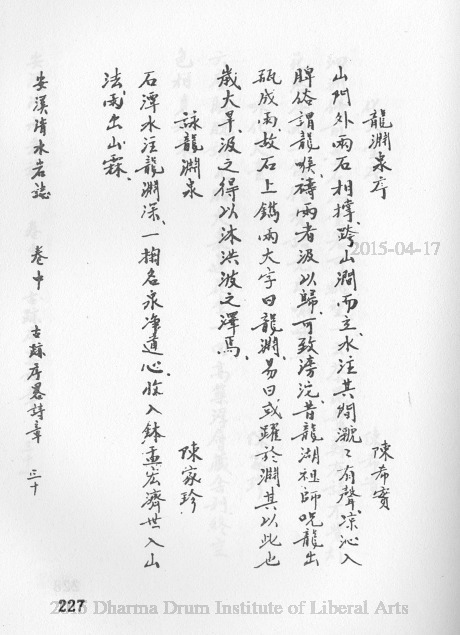 龍淵泉序
陳希實
山門外兩石相撐、跨山澗而立、水注其間、潺〻有聲、凉沁入
脾俗謂龍喉、禱雨者汲以歸可致滂沱、昔龍湖祖師咒龍出
瓶成雨故石上鐫兩大字曰龍淵、易曰或躍於淵其以此也
歲大旱、汲之得以沐洪波之澤焉、
詠龍淵泉
陳家珍
石潭水注龍淵深、一掬名泉净道心、收入鉢盂宏濟世、入山
法雨出山霖、
安溪清水岩誌 卷中 古跡序畧詩章 三十
2015-04-17
227
Dharma Drum Institute of Liberal Arts